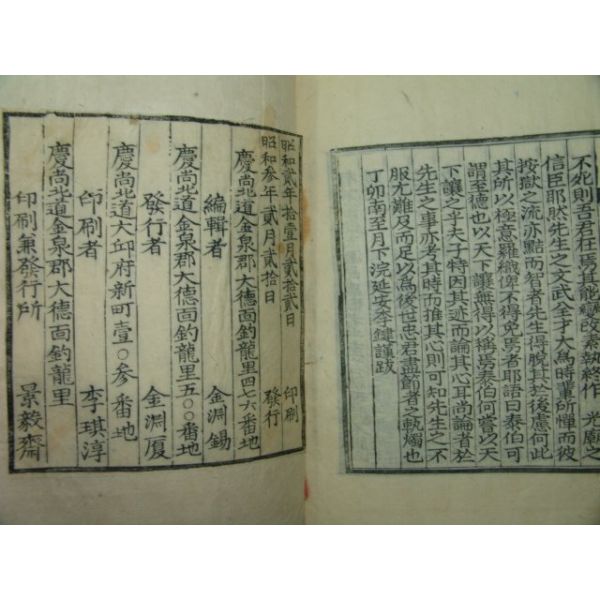 不死則吾君在焉其能變改素執終作 光廟之
信臣耶然先生之文武全才大為時輩所憚而彼
按獄之流亦黠而智者先生得脫其於後慮何此
其所以極意羅織俾不得免焉者耶語曰泰伯可
謂至德也以天下讓無得以稱焉泰伯何嘗以天
下讓之乎夫子特因其迹而論其心耳尚論者於
先生之事亦考其時而推其心則可知先生之不
服尤難及而足以為後世忠君盡節者之執燭也
丁卯南至月下浣延安李鍵謹跋
昭和貳年拾壹月貳拾貳日 印刷
昭和參年貳月貳拾日 發行
慶尚北道金泉郡大德面釣龍里四七六番地
編輯者 金淵錫
慶尚北道金泉郡大德面釣龍里五〇〇番地
發行者 金淵厦
慶尚北道大邱府新町壹〇參番地
印刷者 李琪淳
慶尚北道金泉郡大德面釣龍里
印刷兼發行所 景毅齋